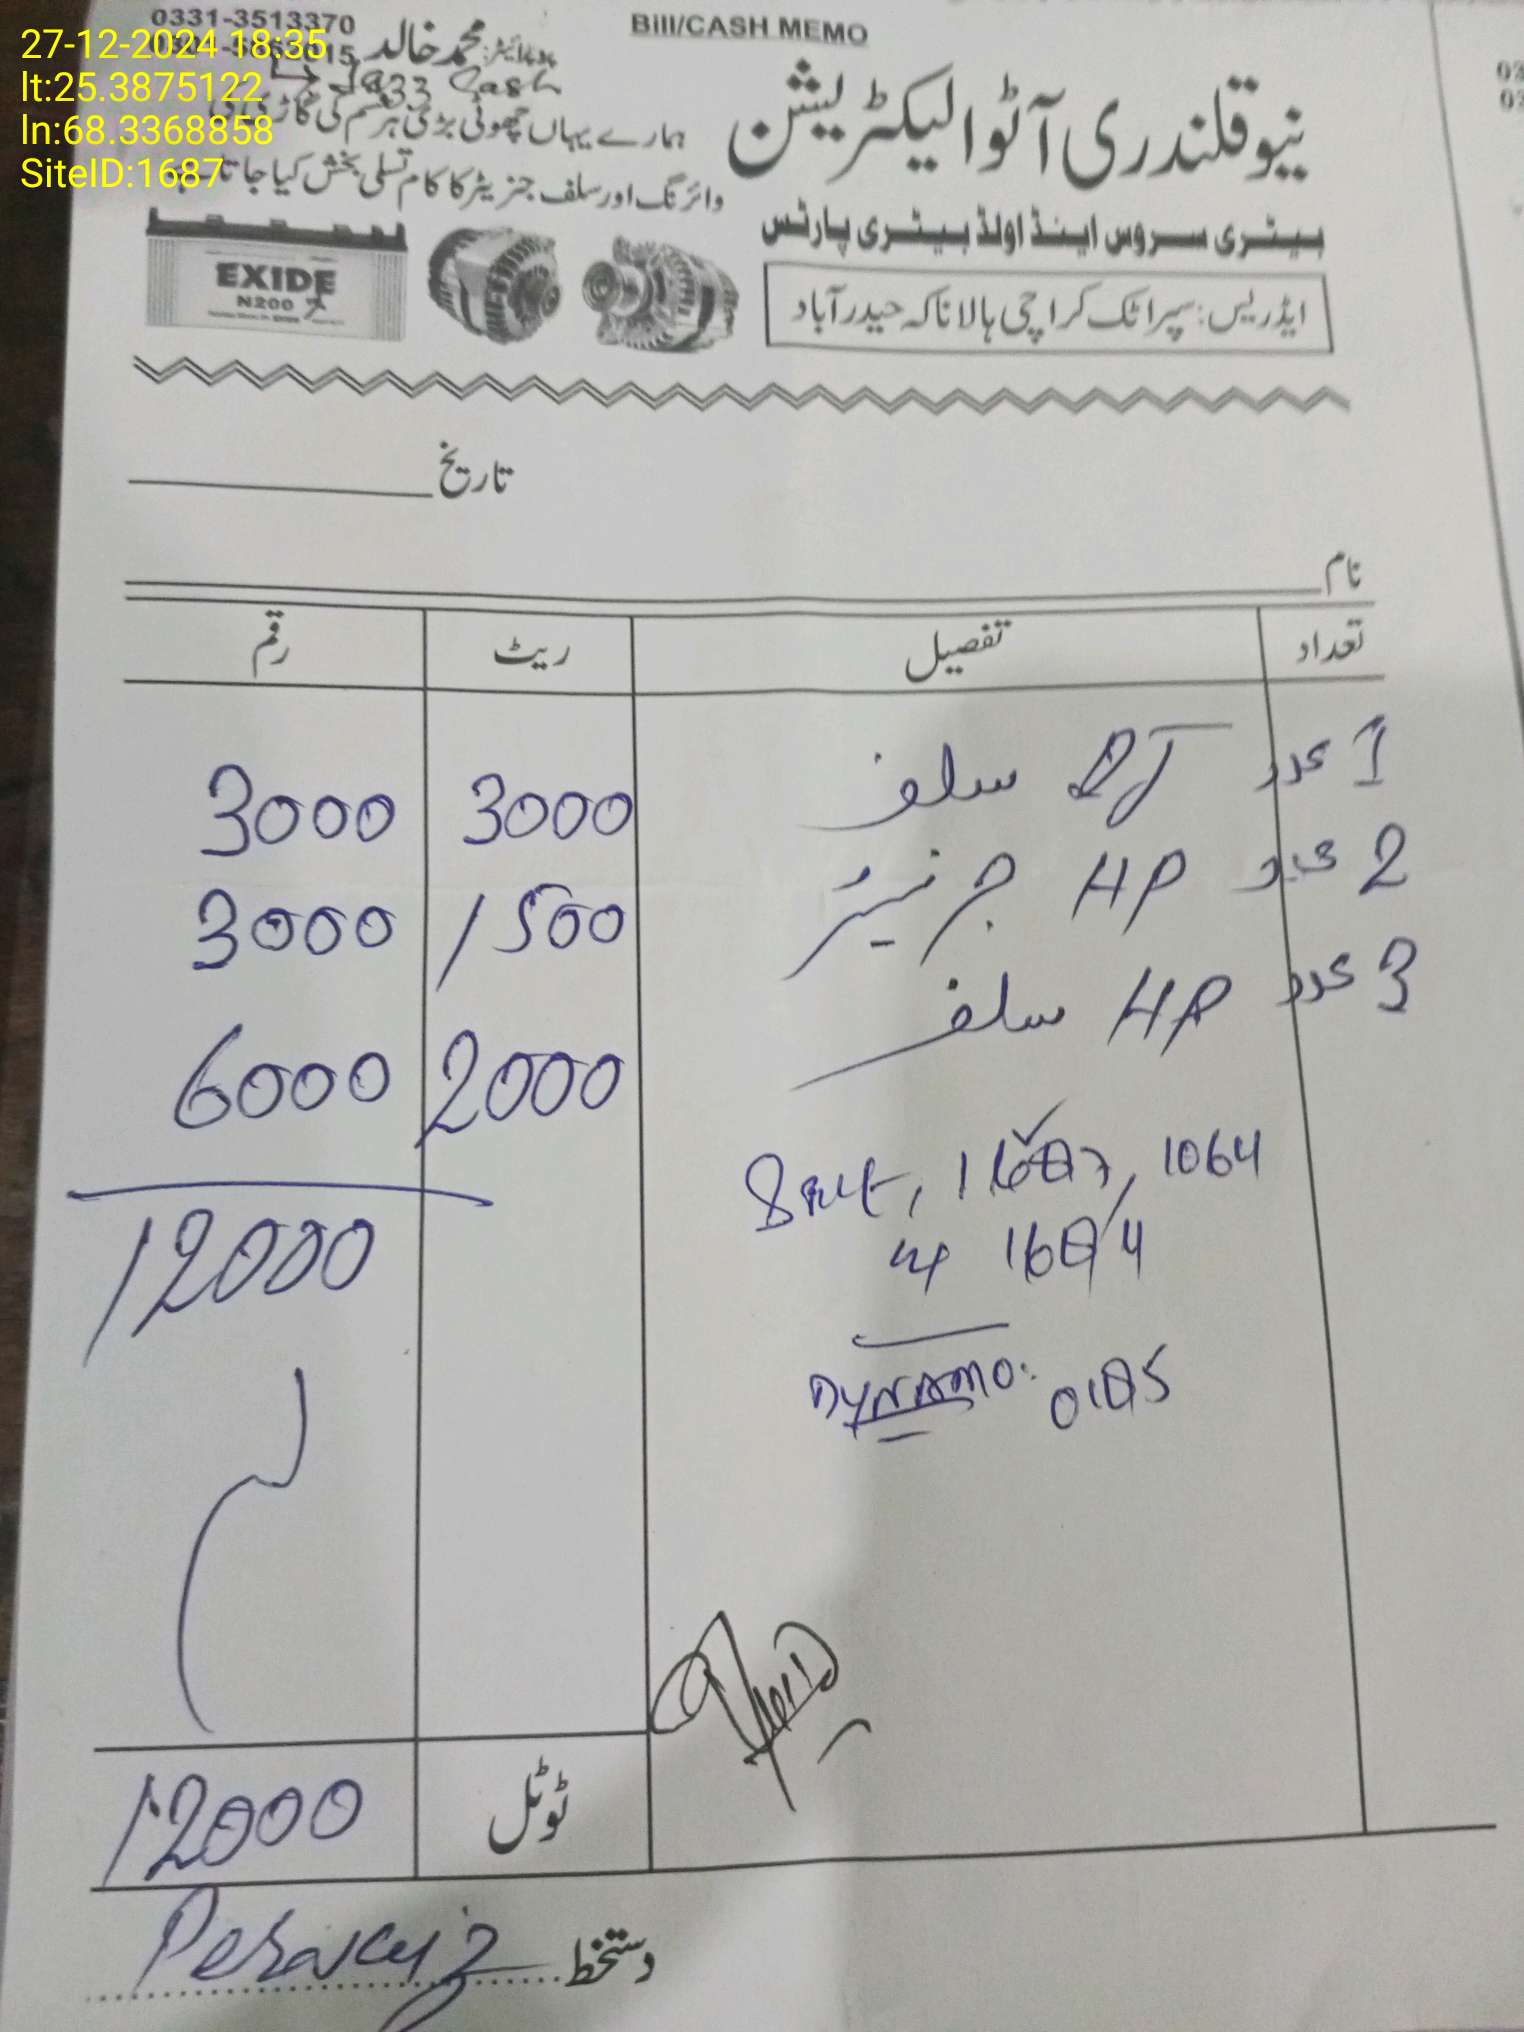 27-12-2024 18:35
lt:25.3875122
ln:68.3368858
SiteID:1687
0331-3513370
Bill/CASH MEMO
محمد خالد
Cash
نیو قلندری آٹو الیکٹریشن
ہمارے یہاں چھوٹی بڑی ہر قسم کی گاڑی
وائرنگ اور سلف جنریٹر کا کام تسلی بخش کیا جاتا
بیٹری سروس اینڈ اولڈ بیٹری پارٹس
EXIDE
N200
ایڈریس: سپرا ٹک کراچی ہالا ناکہ حیدرآباد
تاریخ
نام
تعداد تفصیل ریٹ رقم
1 عدد سلف 3000 3000
2 عدد HP جنریٹر 1500 3000
3 عدد سلف 2000 6000
12000
1064
DYNAMO:
ٹوٹل 12000
دستخط